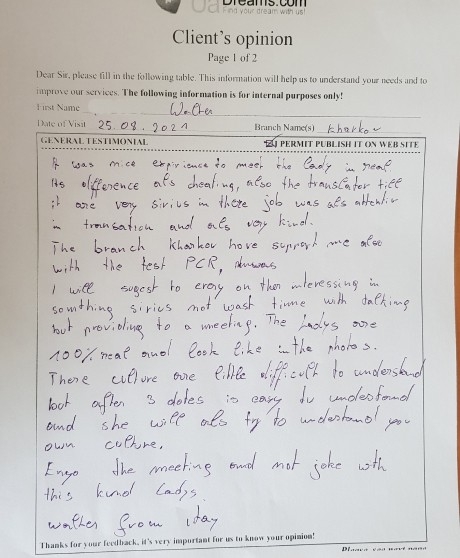 UaDreams.com
Find your dream with us!
Client's opinion
Page 1 of 2
Dear Sir, please fill in the following table. This information will help us to understand your needs and to
improve our services. The following information is for internal purposes only!
First Name Walter
Date of Visit 25.08.2021 Branch Name(s) kharkov
GENERAL TESTIMONIAL I PERMIT PUBLISH IT ON WEB SITE
It was nice expirience to meet the lady in real
its difference als cheating, also the translator till
it are very sirius in there job was als attentiv
in transation and als very kind.
The branch kharkov have support me also
with the test PCR,
I will sugest to erery on then interessing in
somthing sirius not wast time with talking
but providing to a meeting. The Ladys are
100% real and look like in the photos.
There culture are little difficult to understand
but after 3 dates is easy to understand
and she will als try to understand you
own culture.
Enyo the meeting and not joke with
this kind Ladys
walter from itay
Thanks for your feedback, it's very important for us to know your opinion!